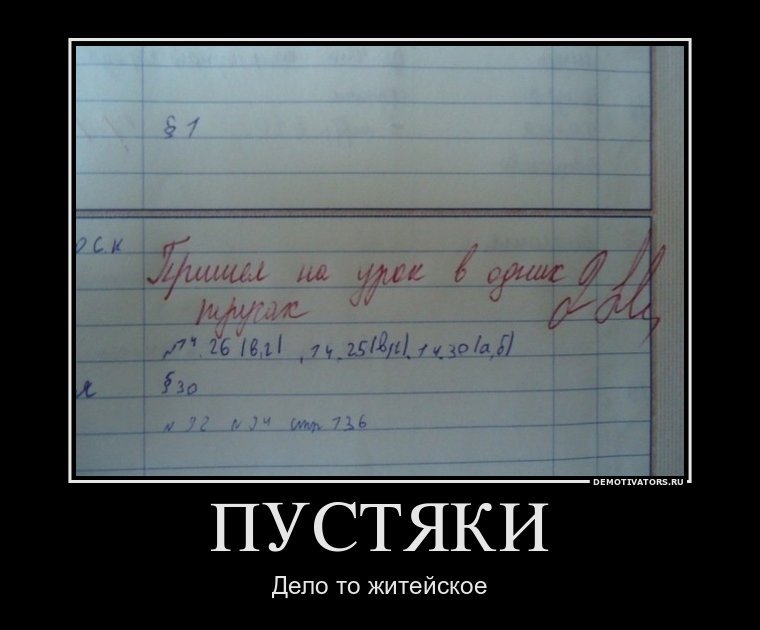 § 1
о с. к
Пришел на урок в одних
трусах
№14.26 (в,г), 14.25(в,г), 14.30(а,б)
я
§ 30
стр 136
DEMOTIVATORS.RU
ПУСТЯКИ
Дело то житейское